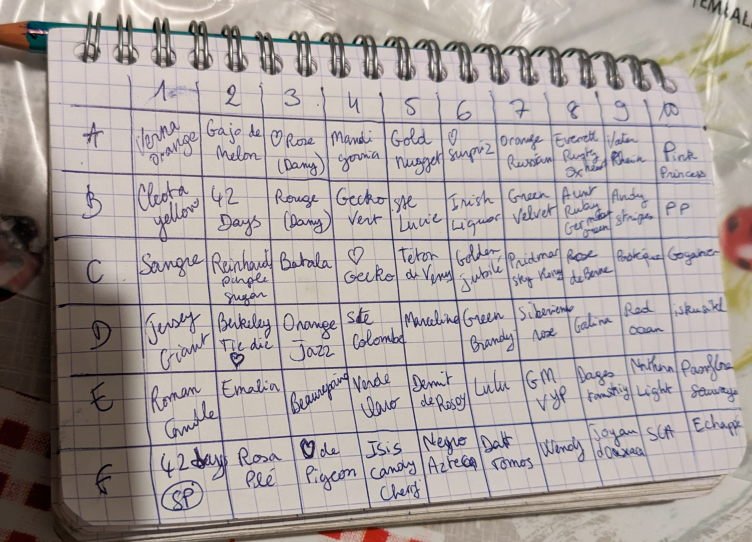 1 2 3 4 5 6 7 8 9 10
A Verna Orange Gajo de Melon ♡ Rose (Dany) Mandi gornia Gold nugget ♡ Surpriz Orange Russian Everett Rusty Oxheart Pink Princess
B Cleota yellow 42 Days Rouge (Dany) Gecko Vert Ste Lucie Irish Liquor Green Velvet Aunt Ruby German Green Andy stripes PP
C Sangre Reinhard purple sugar Batala ♡ Gecko Teton de Venus Golden Jubilé Sky Rose de Berne
D Jersey Giant Berkeley Tie die ♡ Orange Jazz Ste Colombe Marcelino Green Brandy rose Galina Red ocan
E Roman Candle Emalia Beauregaing Verde Claro Demit de Rosoy Lulu GM VYP Light Sauvage
F 42 days SP Rosa Plé ♡ de Pigeon Isis Candy Cherry Negro Azteca Datt romos Wendy Echappé